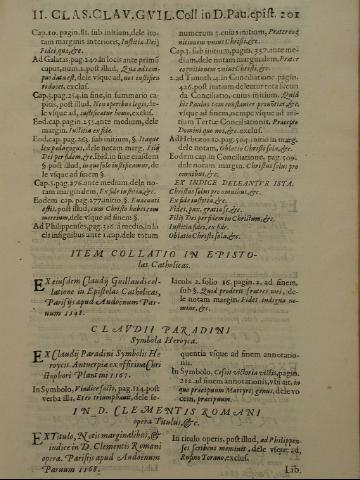 II. CLAS. CLAV. GVIL. Coll in D. Pau. epist. 201
Cap. 10. pagin. 81. sub initium, dele itotam
marginis interioris, Iustitia Dei
Fides, quæ, &c.
Ad Galatas. pag. 240. in locis ante primū
caput, num. 2. post illud,
pur data est, dele vsque ad,
redunt, exclus.
Cap. 3. pag. 254. in fine, in summario capitis,
post illud, Non operibus legis, dele
vsque ad, iustificatur homo, exclus.
Eod. cap. pagin. 255. ante medium, dele
margin. Iustitia ex fide.
Eod. cap. pag. 265. sub initium, §. Itaque
lex pædagogus, dele notam marg. Filij
Dei per fidem, &c. Ibid. in fine eiusdem
§. post illud,
dele vsque ad finem §.
Cap. 5. pag. 276. ante medium, dele notam
marginalem, Ex fide iustitia, &c.
Eodem cap. pag. 277. initio §. Euacuati
estis, post illud, cum Christo habet commercium,
dele vsque ad finem §.
Ad Philippenses, pag. 326. à medio, in locis
insignibus ante 1. cap. dele totum
numerum 5. cuius initium, Præter cognitionem
vnius Christi, &c.
Cap. 3. sub initium, pagin. 337. ante medium,
dele notam marginalem, Præter
cognitionem vnius Christi, &c.
2. ad Timoth. 4. in Conciliatione. pagin.
426. post initium deleatur tertia secunda
Conciliatio, cuius initium. Quod
hic Paulus
vsque ad finem, nempe vsque ad initium
Tertiæ Conciliationis, Præcepto
Domini quo nos, &c. exclus.
Ad Hebræos 10. pag. 504. initio in marg.
dele notam, Oblatio Christi sola, &c.
Eodem cap. in Conciliatione, pag. 509.
dele notam in marg. Christus solus pro
omnibus, &c.
EX INDICE DELEANTVR ISTA.
Christus solus pro omnibus, &c.
Ex fide iustitia, &c.
Fides, pax, gratia, fidei, &c.
Filij Dei per fidem in Christum, &c.
Iustitia fidei, ex fide.
Oblatio Christi sola, &c.
ITEM COLLATIO IN EPISTOlas
Catholicas.
EX eiusdem Claudij Guillaudi collatione
in Epistolas Catholicas,
Parisijs apud Audoënum Paruum
1548.
Iacobi 2. folio 16. pagin. 2. ad finem,
sub §. Quid proderit fratres mei, dele
notam margin. Fides indigna nomine,
&c.
CLAVDII PARADINI
Symbola Heroyca.
EX Claudij Paradini Symbolis Heroycis.
Antuerpiæ ex officina Christophori
Plantini 1567.
In Symbolo, Vindice fato, pag. 124. post
verba illa, Ecce triumphant, dele sequentia
vsque ad finem annotationis.
In Symbolo, Cæsis victoria vittis, pagin.
212. ad finem annotationis, vbi ait, in
quo præcipuum Martyris genus, dele vocem,
præcipuum.
IN D. CLEMENTIS ROMANI
opera Titulus, &c.
EX Titulo, Notis marginalibus, &
indice in D. Clementis Romani
opera. Parisijs apud Audoënum
Paruum 1568.
In titulo operis, post illud, ad Philippenses
scribens meminit, dele vsque ad,
Rufino Torano, exclus.
Lib.